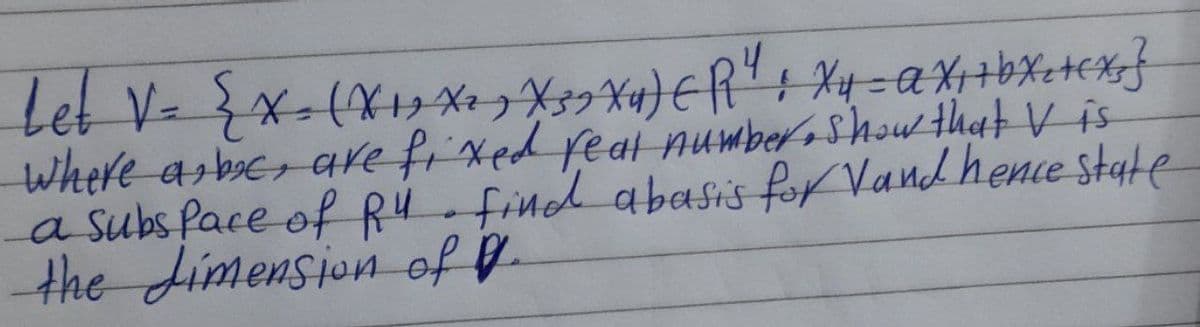 Let V= {x=(x1, x2, x3, x4) ∈ R⁴ : x4=ax1+bx2+cx3}
where a,b,c, are fixed real number, show that V is
a subspace of R4 . find abasis for V and hence state
the dimension of V.